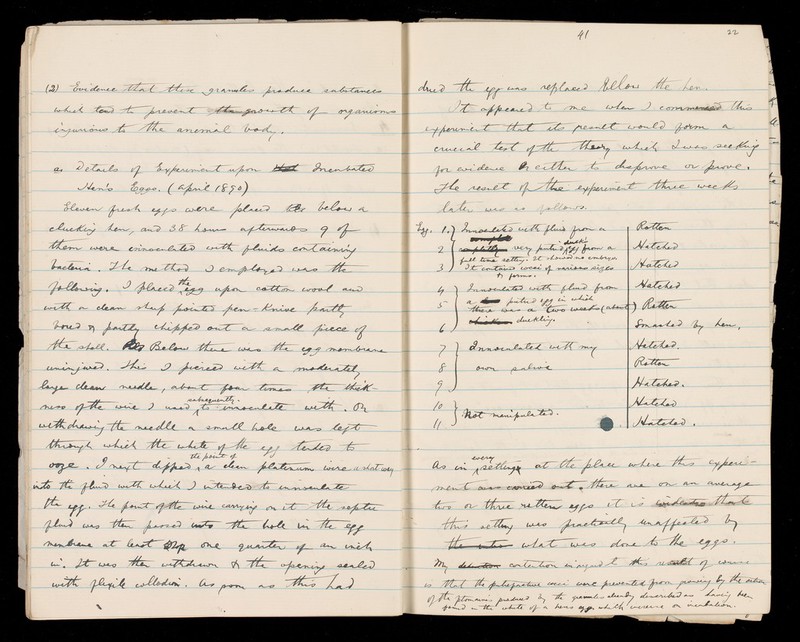 (2) Evidence that these granules produce substances
which tend to prevent the growth of organisms
injurious to the animal body.
a. Details of Experiment upon Incubated
Hen's Eggs. (April 1890)
Eleven fresh eggs were placed below a
clucking hen, and 38 hours afterwards 9 of
them were innoculated with fluids containing
bacteria. The method I employed was the
following. I placed the egg upon cotton wool and
with a clean sharp pointed pen-knive partly
bored & partly chipped out a small piece of
the shell. Below there was the egg membrane
uninjured. This I pierced with a moderately
large clean needle, about four times the thick-
ness of the wire I used subsequently to innoculate with. On
withdrawing the needle a small hole was left
through which the white of the egg tended to
ooze. I next dipped the point of a clean platinum wire
into the fluid with which I intended to innoculate
the egg. The point of the wire carrying on it the septic
fluid was then passed into the hole in the egg
membrane at least one quarter of an inch
in. It was then withdrawn & the opening sealed
with flexile collodion. As soon as this had
41
22
dried the egg was replaced below the hen.
It appeared to me when I commenced this
experiment that its result would form a
crucial test of the theory which I was seeking
for evidence either to disprove or prove.
The result of the experiment three weeks
later was as follows.
Egg. 1. Innoculated with fluid from a Rotten
2 very putrid duck's egg from a Hatched
full time setting. It showed no embryo
3 It contained cocci of various sizes Hatched
& forms.
4 Innoculated with fluid from Hatched
5 a putrid egg in which Rotten
there was a two weeks (about)
6 chicken duckling. Smashed by hen.
7 Innoculated with my Hatched.
8 own saliva Rotten
9 Hatched.
10 Not manipulated. Hatched
11 Hatched.
As in every setting at the place where this experi-
ment was carried out, there are on an average
two or three rotten eggs it is indicated that
this setting was practically unaffected by
what was done to the eggs.
My contention in regard to this result of course
is that the putrefactive cocci were prevented from growing by the action
of the ptomaines produced by the granules already described as having been
found in the white of a hen's egg, whilst undergoing incubation.